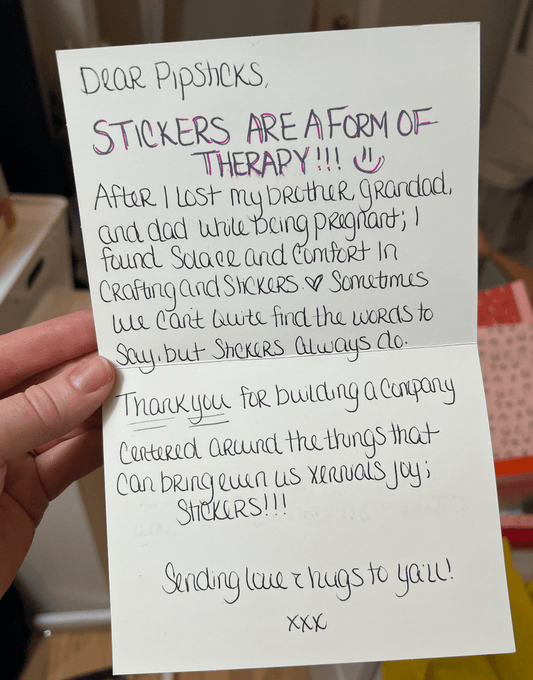 Dear Pipsticks,
STICKERS ARE A FORM OF
THERAPY!!!
After I lost my brother, grandad,
and dad while being pregnant; I
found Solace and Comfort In
Crafting and Stickers ♥ Sometimes
we can't quite find the words to
say, but Stickers always do.
Thank you for building a Company
Centered around the things that
can bring even us xennials joy;
Stickers!!!
Sending love & hugs to ya'll!
xxx